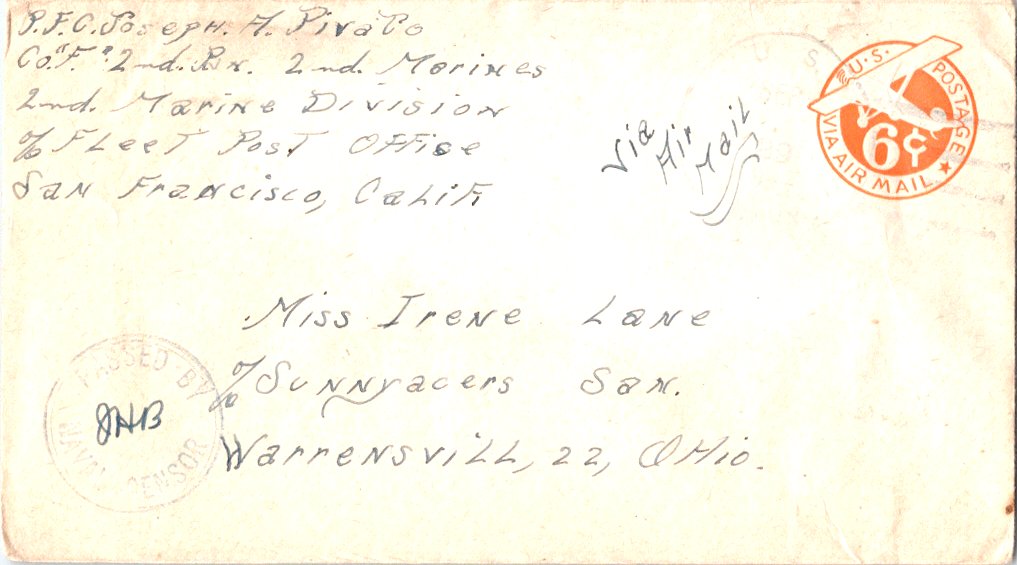 P.F.C. Joseph. A. Pivato
Co. "F." 2nd. Bn. 2nd. Marines
2nd. Marine Division
% Fleet Post Office
San Francisco, Calif.
Via
Air
Mail
U.S. POSTAGE
6¢
VIA AIR MAIL
U. S.
Miss Irene Lane
% Sunnyacers San.
Warrensvill, 22, Ohio.
PASSED BY
JHB
NAVAL CENSOR